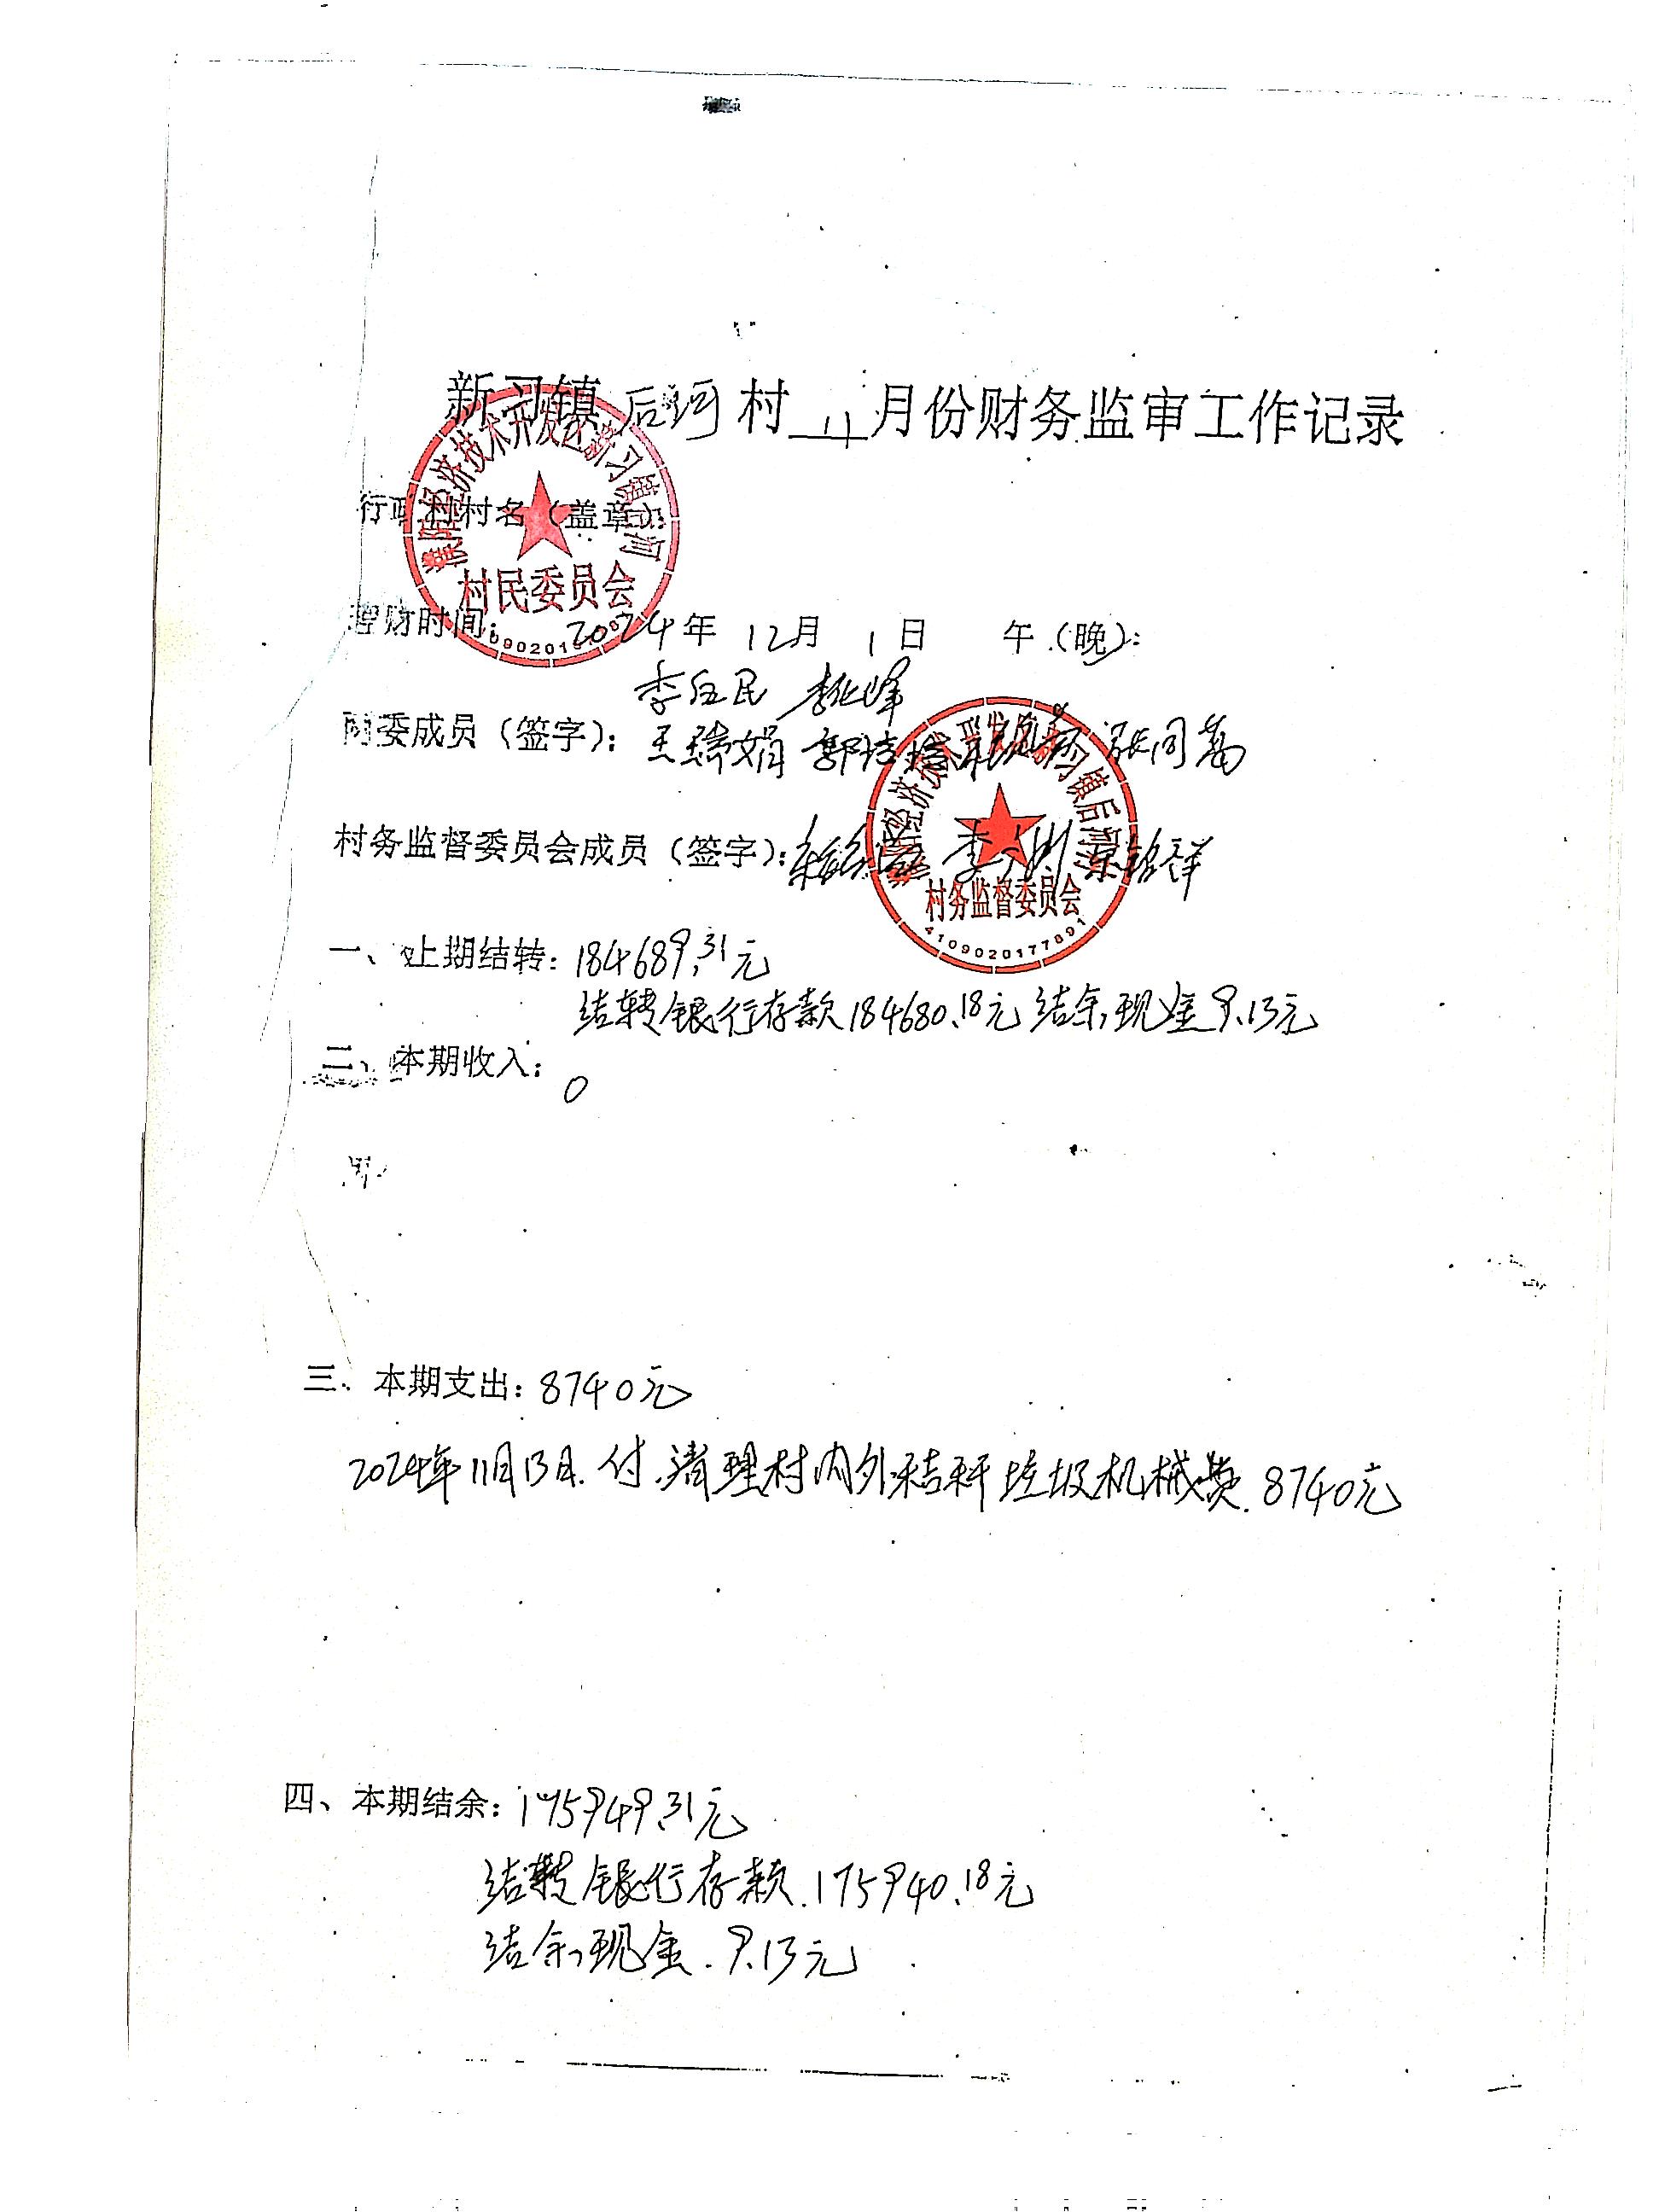 新习镇 后河 村 11 月份财务监审工作记录
行政村村名（盖章）
濮阳经济技术开发区新习镇后河
村民委员会
理财时间： 2024年 12月 1日 午（晚）：
李 民 李 峰
两委成员（签字）：王瑞娟 郭 张同
濮阳经济技术开发区新习镇后河
村务监督委员会成员（签字）：李
村务监督委员会
4109020177891
一、上期结转：184689.31元
结转银行存款184680.18元 结余现金9.13元
二、本期收入：0
三、本期支出：8740元
2024年11月13日.付.清理村内外秸秆垃圾机械费.8740元
四、本期结余：175949.31元
结转银行存款.175940.18元
结余现金.9.13元